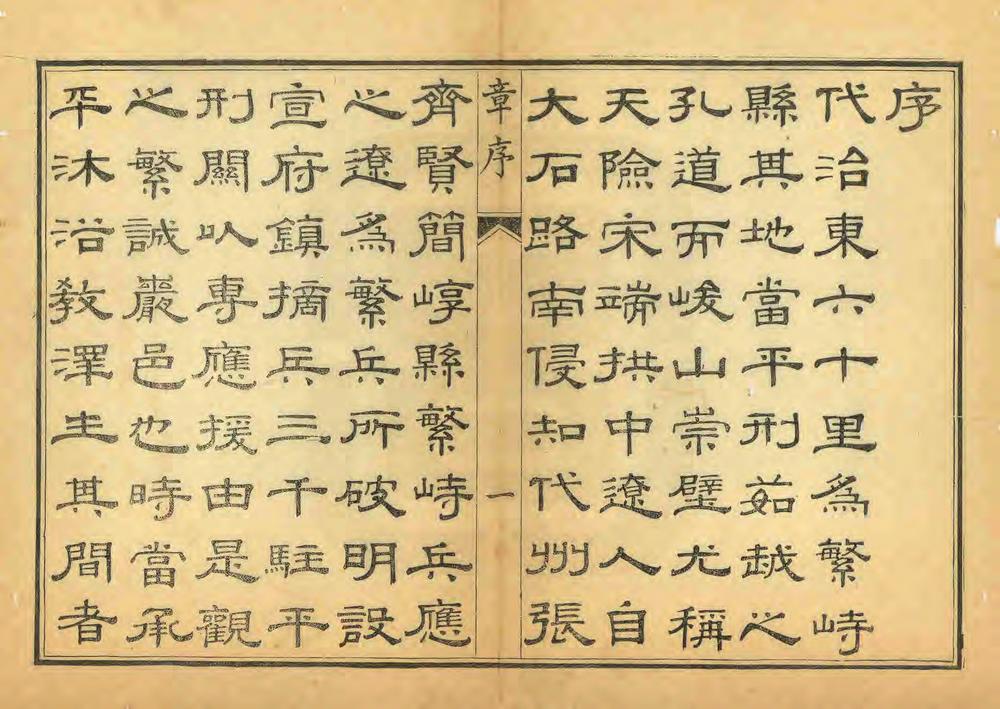 序
代治東六十里為繁峙
縣其地當平刑茹越之
孔道而峻山崇璧尤稱
天險宋端拱中遼人自
大石路南侵知代州張
章序
一
齊賢簡崞縣繁峙兵應
之遼為繁兵所破明設
宣府鎮摘兵三千駐平
刑關以專應援由是觀
之繁誠嚴邑也時當承
平沐浴敎澤生其間者